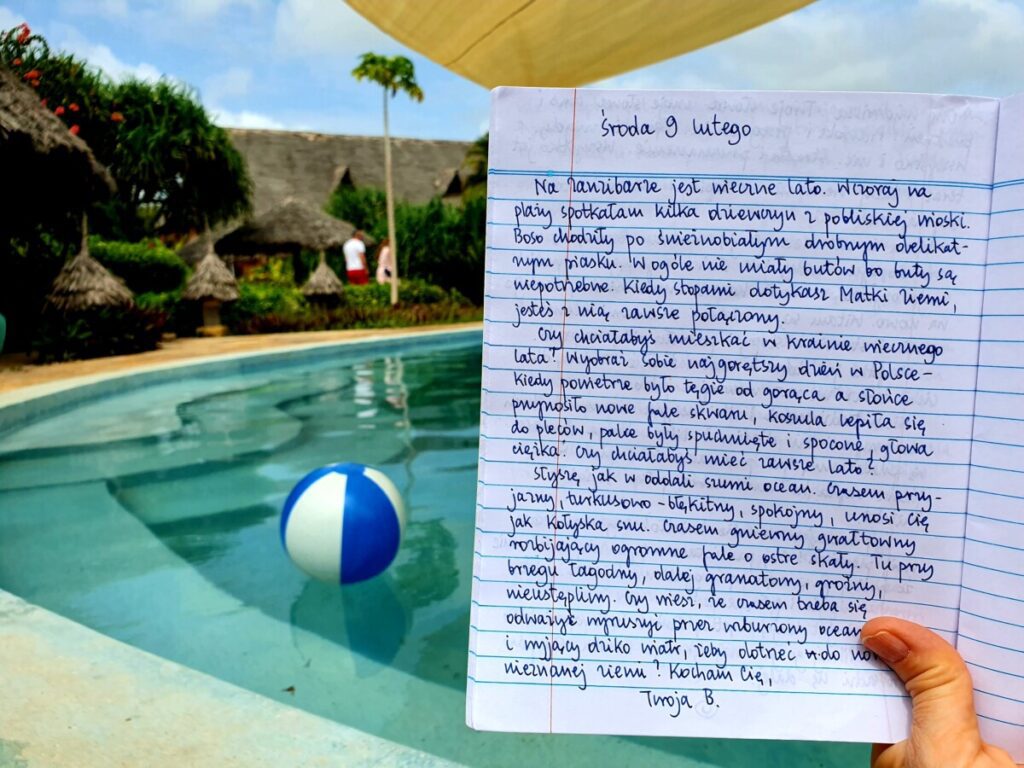 środa 9 lutego
Na Zanzibarze jest wieczne lato. Wczoraj na
plaży spotkałam kilka dziewczyn z pobliskiej wioski.
Boso chodziły po śnieżnobiałym drobnym delikat-
nym piasku. W ogóle nie miały butów bo buty są
niepotrzebne. Kiedy stopami dotykasz Matki Ziemi,
jesteś z nią zawsze połączony.
Czy chciałabyś mieszkać w krainie wiecznego
lata? Wyobraź sobie najgorętszy dzień w Polsce -
kiedy powietrze było tęgie od gorąca a słońce
przynosiło nowe fale skwaru, koszula lepiła się
do pleców, palce były spuchnięte i spocone, głowa
ciężka. Czy chciałabyś mieć zawsze lato?
Słyszę, jak w oddali szumi ocean. Czasem przy-
jazny, turkusowo-błękitny, spokojny, unosi Cię
jak kołyska snu. Czasem gniewny gwałtowny
rozbijający ogromne fale o ostre skały. Tu przy
brzegu łagodny, dalej granatowy, groźny,
nieustępliwy. Czy wiesz, że czasem trzeba się
odważyć wyruszyć przez wzburzony ocean
i wyjący dziko wiatr, żeby dotrzeć do
nieznanej ziemi? Kocham Cię,
Twoja B.